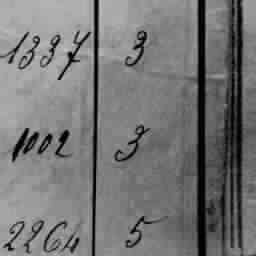 1337 3
1002 3
2264 5